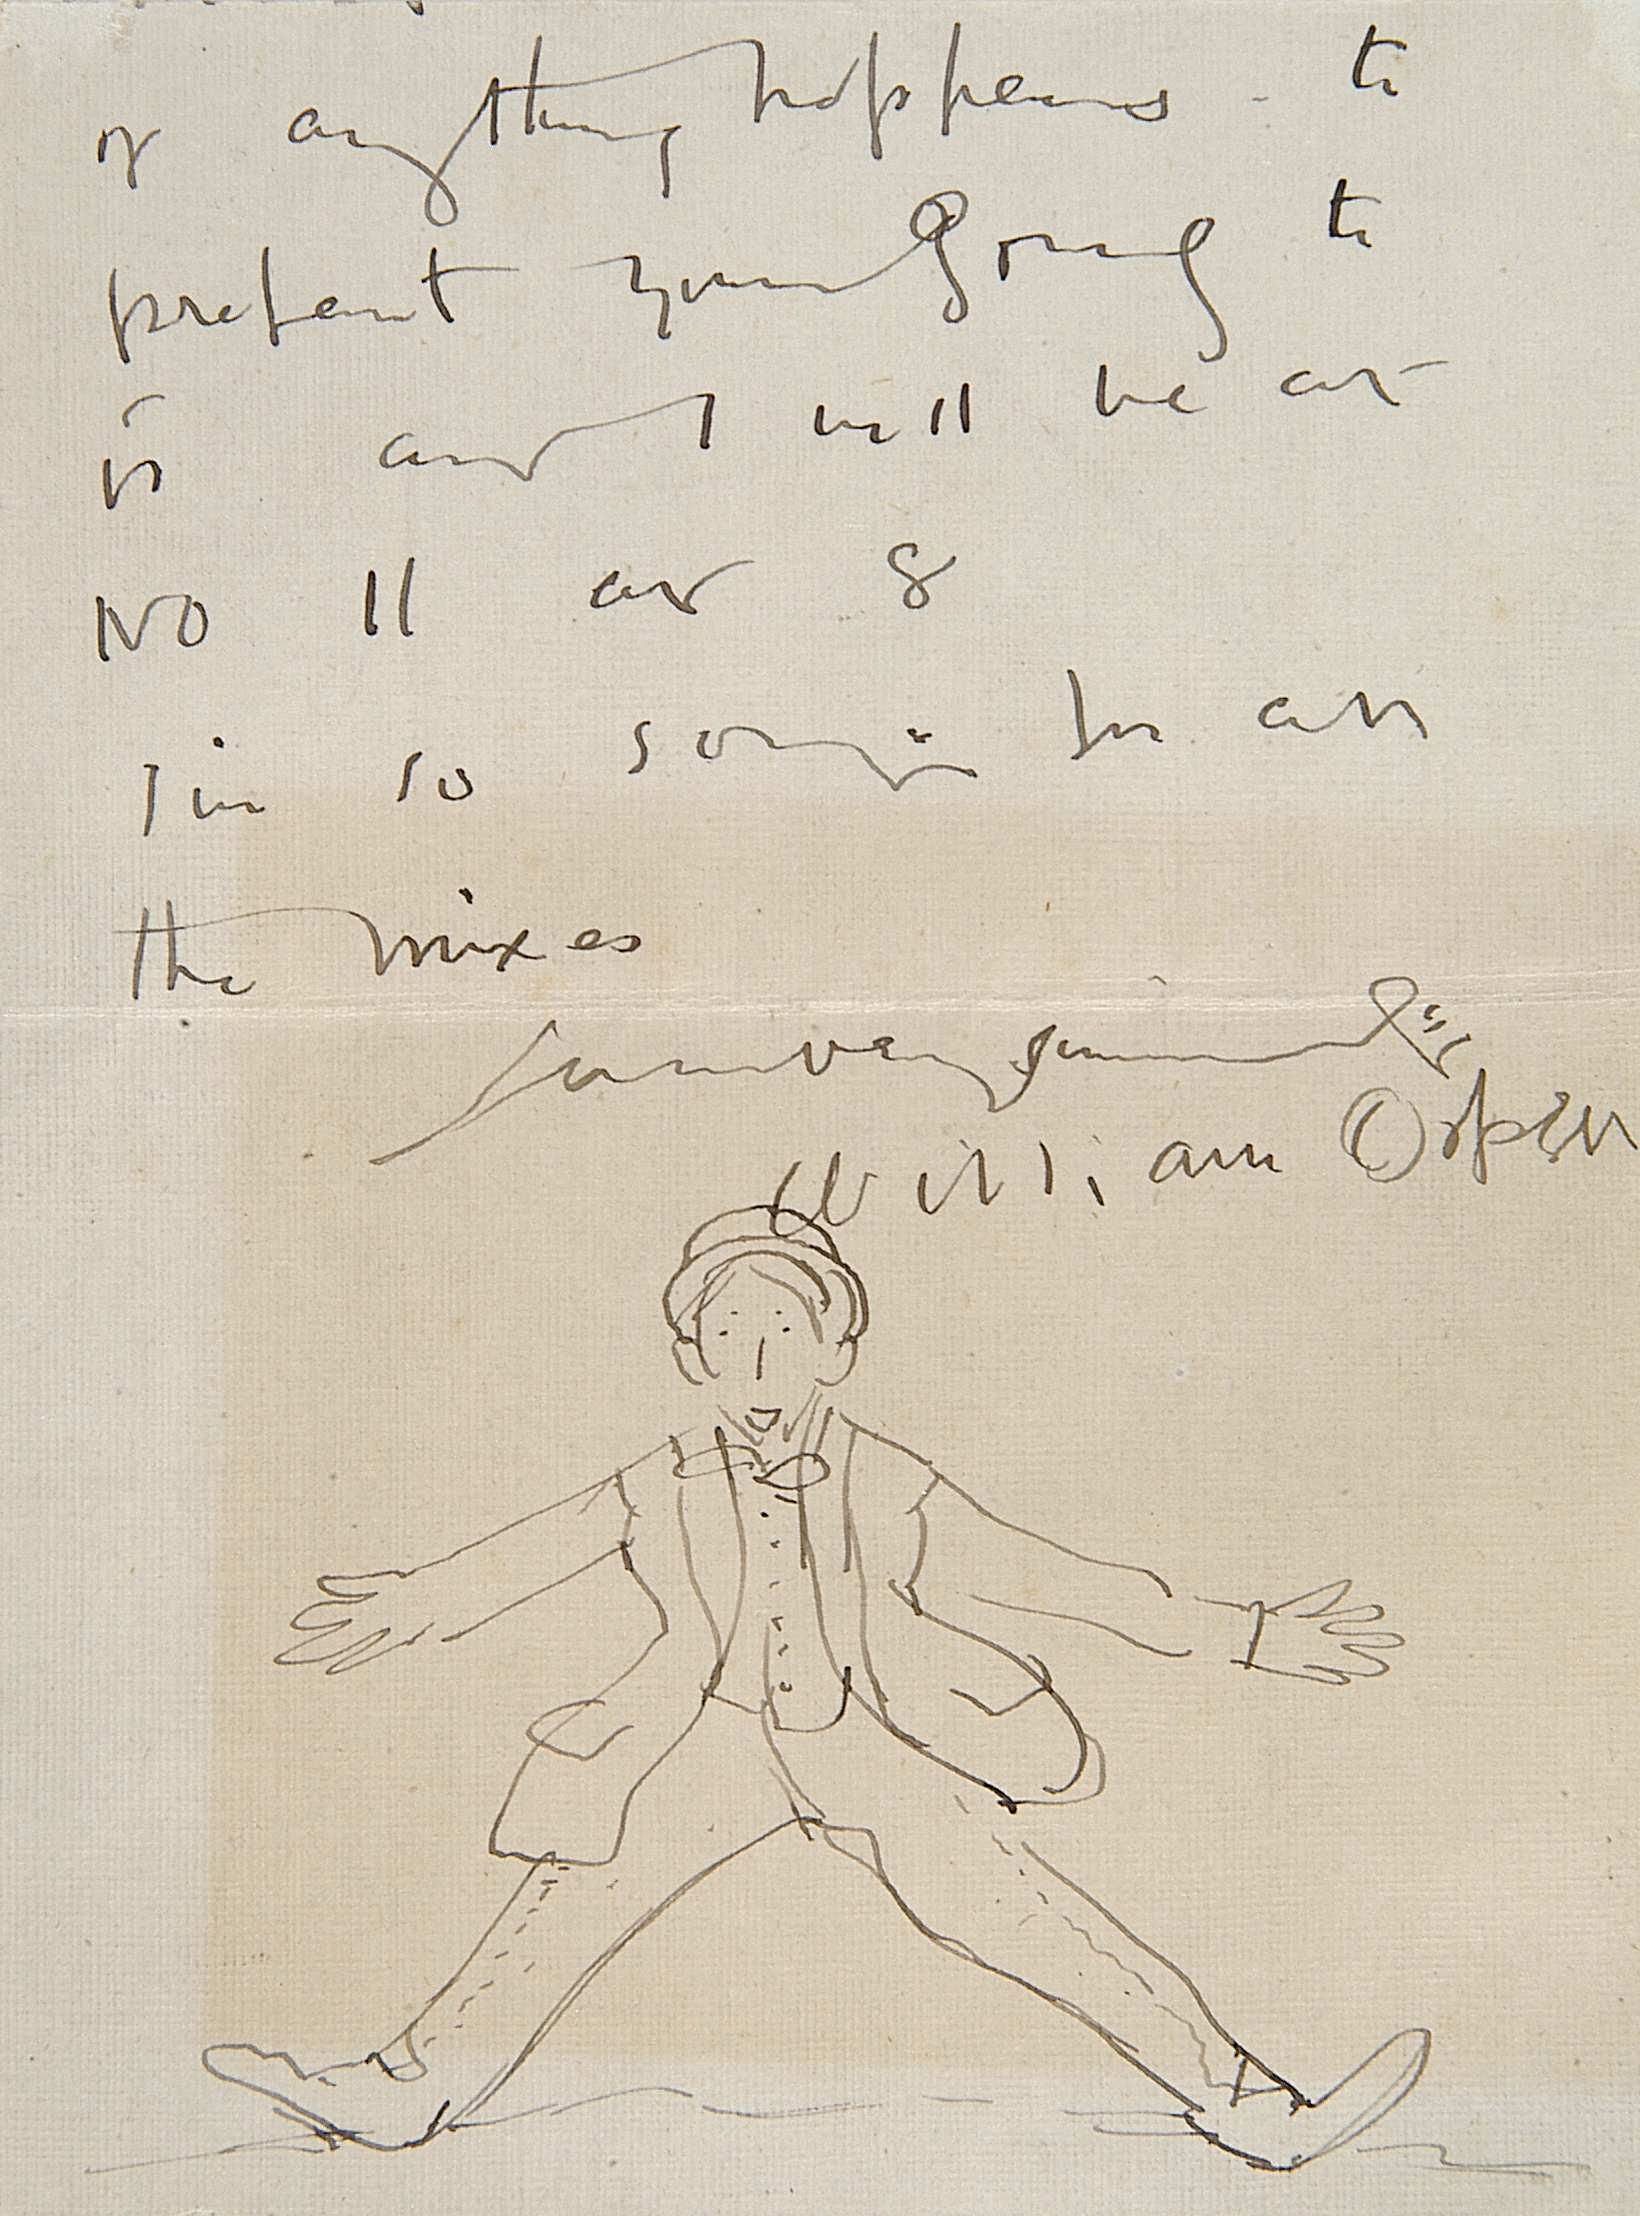 or anything happens - to
prefent your going to
it and I will be at
No 11 at 8
I'm so sorry for all
the mixes
Yours very sincerely
William Orpen